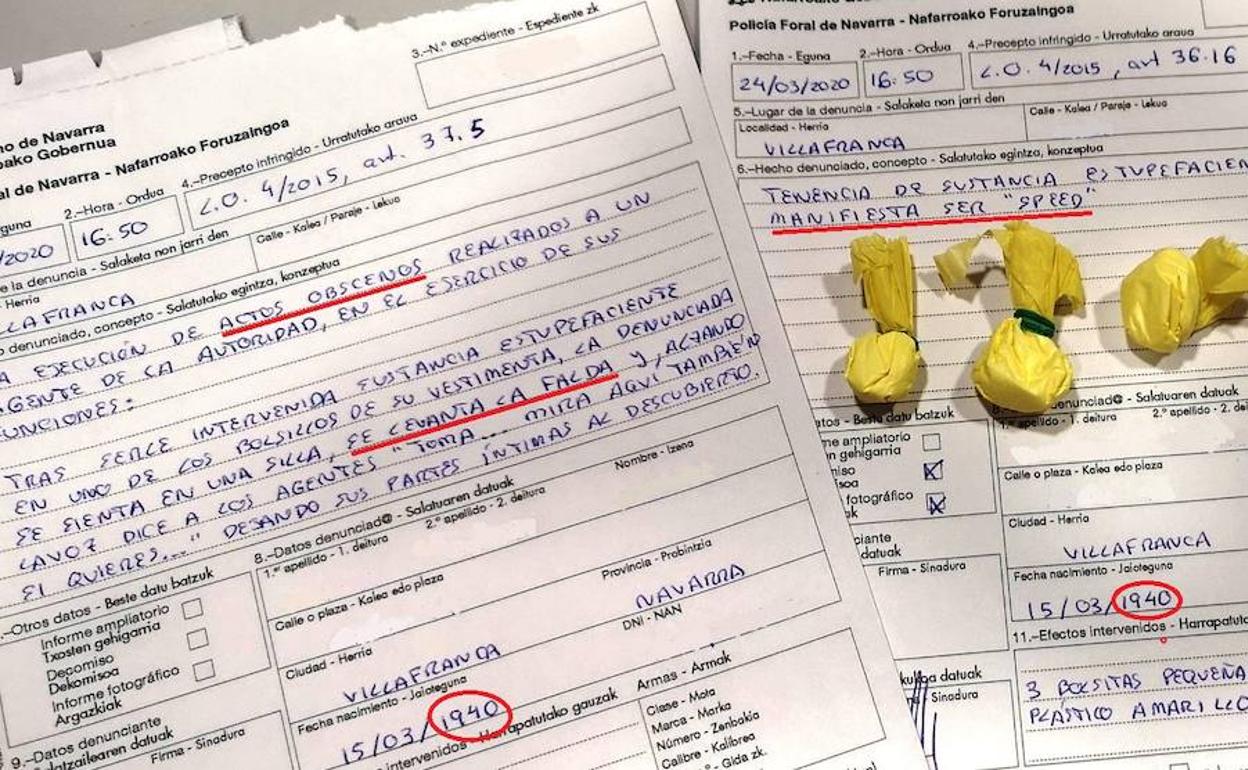 no de Navarra
oako Gobernua
al de Navarra - Nafarroako Foruzaingoa
3.-N.º expediente - Espediente zk
guna
2.-Hora - Ordua
4.-Precepto infringido - Urratutako araua
/2020
16:50
L.O. 4/2015, art. 37.5
e la denuncia - Salaketa non jarri den
Herria
Calle - Kalea / Paraje - Lekua
LLAFRANCA
denunciado, concepto - Salatutako egintza, kontzeptua
A EJECUCIÓN DE ACTOS OBSCENOS REALIZADOS A UN
AGENTE DE LA AUTORIDAD, EN EL EJERCICIO DE SUS
FUNCIONES:
TRAS SERLE INTERVENIDA SUSTANCIA ESTUPEFACIENTE
EN UNO DE LOS BOLSILLOS DE SU VESTIMENTA, LA DENUNCIADA
SE SIENTA EN UNA SILLA, SE LEVANTA LA FALDA Y, ALZANDO
LA VOZ DICE A LOS AGENTES "TOMA... MIRA AQUÍ TAMBIÉN
SI QUIERES..." DEJANDO SUS PARTES ÍNTIMAS AL DESCUBIERTO.
.-Otros datos - Beste datu batzuk
Informe ampliatorio
Txosten gehigarria
Decomiso
Dekomisoa
Informe fotográfico
Argazkiak
8.-Datos denunciad@ - Salatuaren datuak
1.º apellido - 1. deitura
2.º apellido - 2. deitura
Nombre - Izena
Calle o plaza - Kalea edo plaza
Provincia - Probintzia
NAVARRA
Ciudad - Herria
DNI - NAN
VILLAFRANCA
Fecha nacimiento - Jaioteguna
15/03/1940
9.-Datos denunciante
latzailearen datuak
Firma - Sinadura
intervenidos - Harrapatutako gauzak
Armas - Armak
Clase - Mota
Marca - Marka
Número - Zenbakia
Calibre - Kalibrea
Gida zk.
Policía Foral de Navarra - Nafarroako Foruzaingoa
1.-Fecha - Eguna
2.-Hora - Ordua
4.-Precepto infringido - Urratutako araua
24/03/2020
16:50
L.O. 4/2015, art 36.16
5.-Lugar de la denuncia - Salaketa non jarri den
Localidad - Herria
Calle - Kalea / Paraje - Lekua
VILLAFRANCA
6.-Hecho denunciado, concepto - Salatutako egintza, kontzeptua
TENENCIA DE SUSTANCIA ESTUPEFACIEN
MANIFIESTA SER "SPEED"
atos - Beste datu batzuk
me ampliatorio
en gehigarria
miso
isoa
fotográfico
ak
Salatuaren datuak
1.º apellido - 1. deitura
2.º apellido - 2. dei
Calle o plaza - Kalea edo plaza
Ciudad - Herria
VILLAFRANCA
ciante
datuak
Firma - Sinadura
Fecha nacimiento - Jaioteguna
15/03/1940
11.-Efectos intervenidos - Harrapatuta
datuak
Sinadura
3 BOLSITAS PEQUEÑA
PLÁSTICO AMARILLO